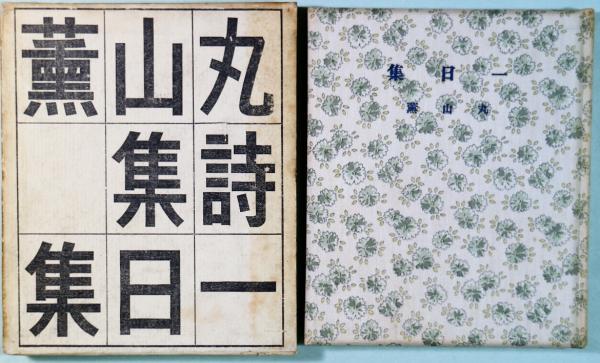 薫山丸
集詩
集日一
集日一
薫山丸